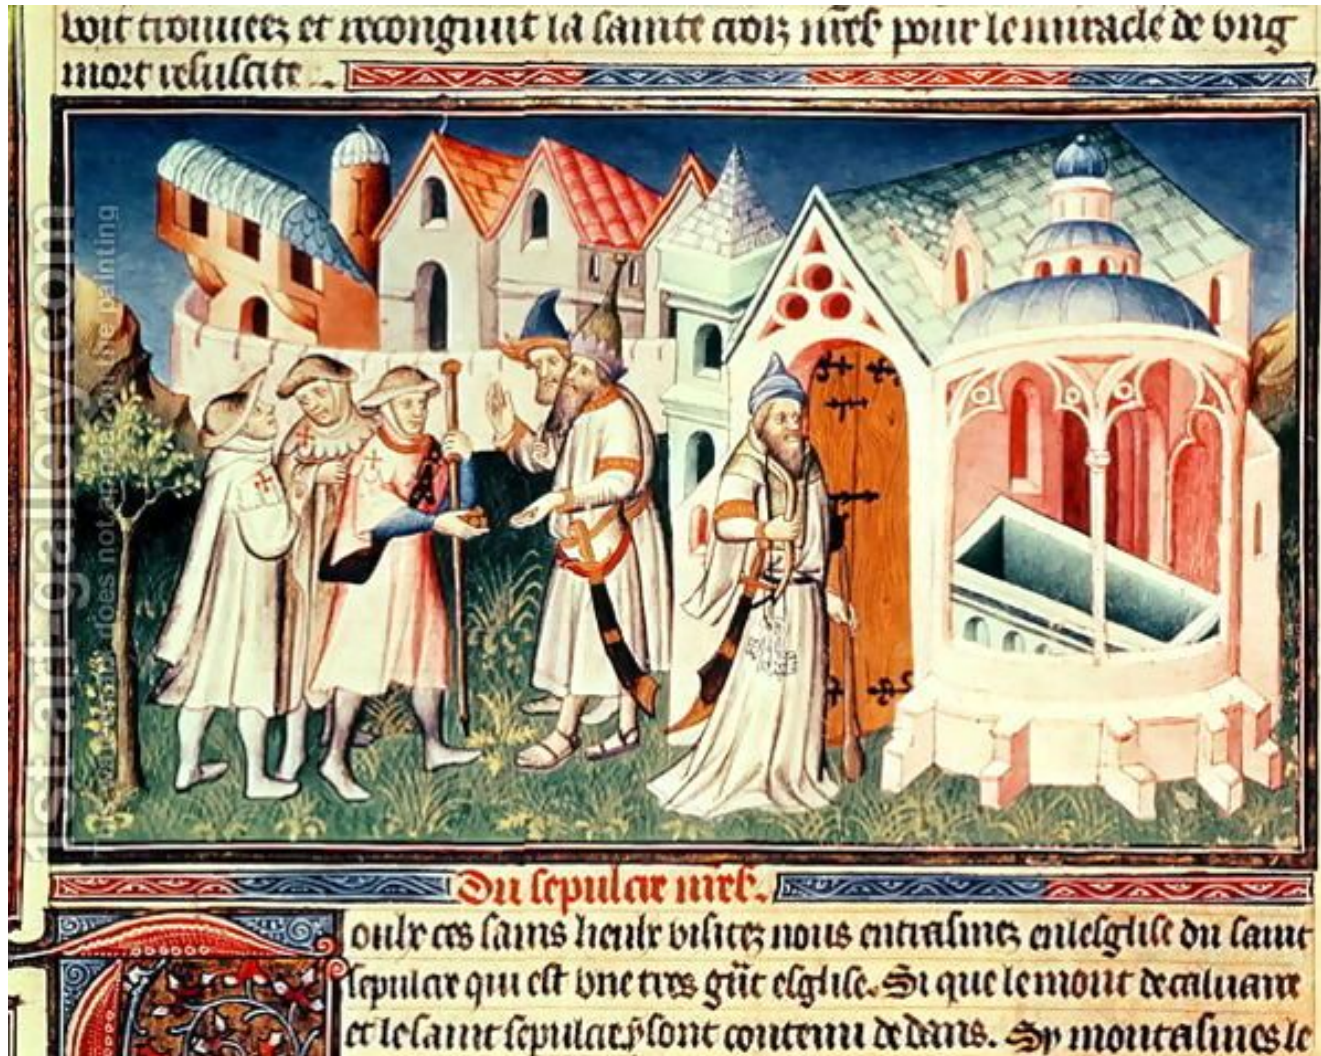 voit trouuees et recongnut la sainte croix nres pour le miracle de ung
mort resuscite
Du sepulcre nres.
Toulx ces sains lieulx visitez nous entrasmez en lesglise du saint
sepulcre qui est vne tres gnt esglise. Si que le mont de caluaire
et le saint sepulcre y sont contenu dedans. Sy montasmes le
1st-art-gallery.com
does not appear on the painting